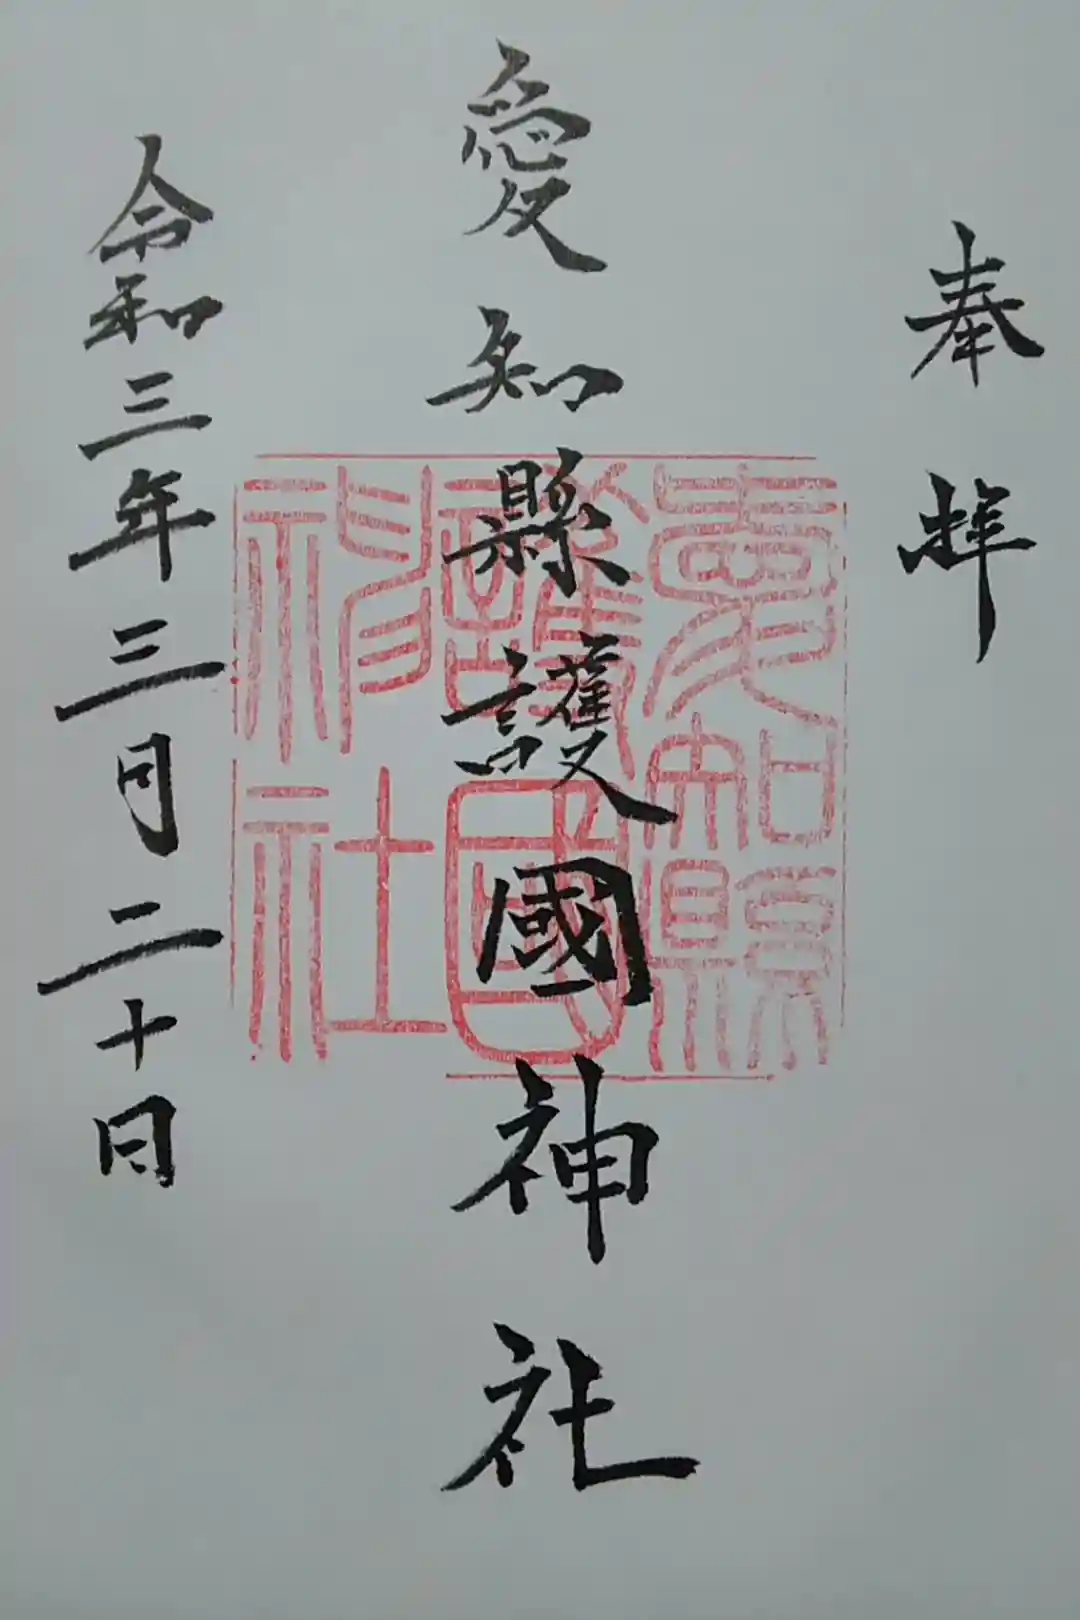 奉拝
愛知縣護國神社
愛知縣護國神社
令和三年三月二十日